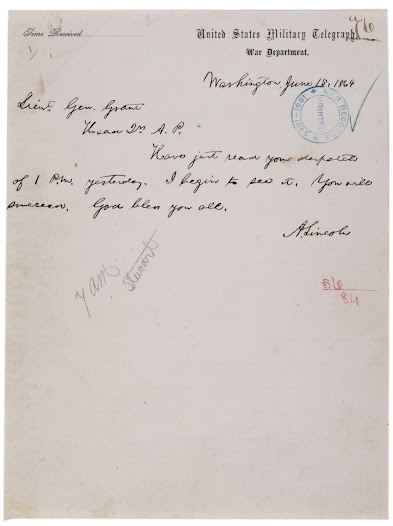 Time Received
United States Military Telegraph,
War Department.
Washington, June 15, 1864
Lieut. Gen. Grant
Head Qrs. A. P.
Have just read your despatch
of 1 P.M. yesterday. I begin to see it. You will
succeed. God bless you all.
A. Lincoln
7 am
Stewart
56
84